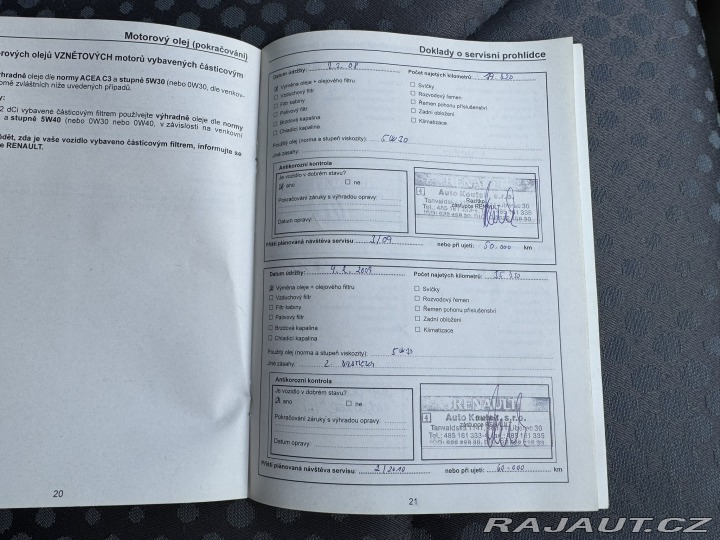 Motorový olej (pokračování)
orových olejů VZNĚTOVÝCH motorů vybavených částicovým
výhradně oleje dle normy ACEA C3 a stupně 5W30 (nebo 0W30, dle venkov-
omě zvláštních níže uvedených případů.
y:
2 dCi vybavené částicovým filtrem používejte výhradně oleje dle normy
a stupně 5W40 (nebo 0W30 nebo 0W40, v závislosti na venkovní
ědět, zda je vaše vozidlo vybaveno částicovým filtrem, informujte se
e RENAULT.
20
Doklady o servisní prohlídce
Datum údržby: 08
Počet najetých kilometrů:
Výměna oleje + olejového filtru
Vzduchový filtr
Filtr kabiny
Palivový filtr
Brzdová kapalina
Chladicí kapalina
Svíčky
Rozvodový řemen
Řemen pohonu příslušenství
Zadní obložení
Klimatizace
Použitý olej (norma a stupeň viskozity): 5W30
Jiné zásahy:
Antikorozní kontrola
Je vozidlo v dobrém stavu?
ano
ne
Pokračování záruky s výhradou opravy:
Datum opravy:
Razítko
zástupce RENAULT
4 Auto Koutsit, s.r.o.
Příští plánovaná návštěva servisu: 2/09
nebo při ujetí: 50.000 km
Datum údržby: 9.2.2009
Počet najetých kilometrů:
Výměna oleje + olejového filtru
Vzduchový filtr
Filtr kabiny
Palivový filtr
Brzdová kapalina
Chladicí kapalina
Svíčky
Rozvodový řemen
Řemen pohonu příslušenství
Zadní obložení
Klimatizace
Použitý olej (norma a stupeň viskozity): 5W30
Jiné zásahy: 2.
Antikorozní kontrola
Je vozidlo v dobrém stavu?
ano
ne
Pokračování záruky s výhradou opravy:
Datum opravy:
RENAULT
4 Auto Koutsit, s.r.o.
zástupce RENAULT
Tel.: 485 161 333
Příští plánovaná návštěva servisu: 2/2010
nebo při ujetí: 60.000 km
21
RAJAUT.CZ